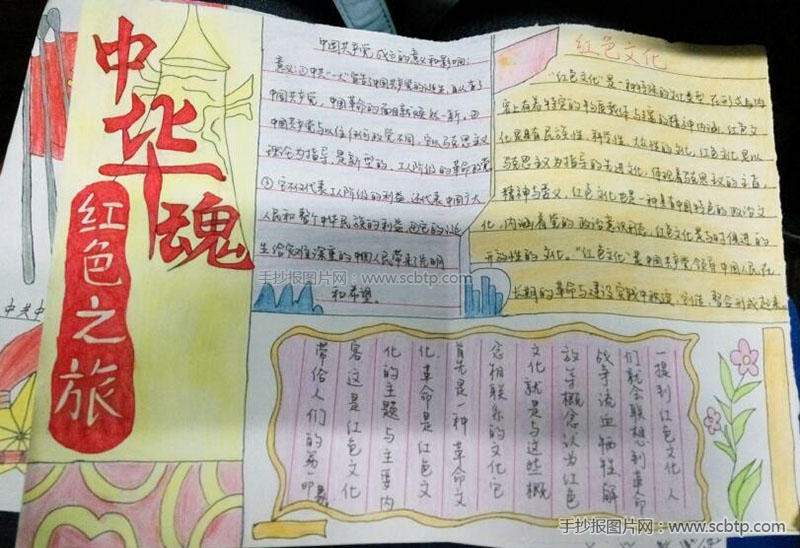 中华魂
红色之旅
中国共产党成立的意义和影响:
意义:①中共"一大"宣告了中国共产党的诞生,自从有了
中国共产党,中国革命的面目就焕然一新,因
中国共产党与以往任何政党不同,它以马克思主义
理论为指导,是新型的,工人阶级的革命政党
②它不仅代表工人阶级的利益,还代表中国广大
人民和整个中华民族的利益,它的诞
生给危难深重的中国人民带来光明
和希望。
红色文化
"红色文化"是一种特殊的文化类型,在形式与内
容上有着特定的 与 的精神内涵,红色文
化是具有民族性,科学性,大众性的文化,红色文化是以
马克思主义为指导的先进文化,体现着马克思主义的
精神与意义,红色文化也是一种具有中国特色的政治文
化,内涵着党的政治意识 红色文化是与时俱进的
开放性的文化。"红色文化"是中国共产党领导中国人民在
长期的革命与建设实践中 创造,整合形成起来
一提到红色文化人
们就会联想到革命
战争流血牺牲解
放等概念认为红色
文化就是与这些概
念相联系的文化它
首先是一种革命文
化,革命是红色文
化的主题与主要内
容这是红色文化
带给人们的第一印象
中共中
手抄报图片网:www.scbtp.com
手抄报图片网:www.scbtp.com